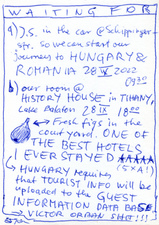 WAITING FOR
a) J.S. in the car @ Schippinger-
str. So we can start our
journey to HUNGARY &
ROMANIA 28 IX 2022
0920
b) our room @
"HISTORY HOUSE" in TIHANY,
Lake Balaton 28 IX 1800
Fresh figs in the
courtyard. ONE OF
THE BEST HOTELS
I EVER STAYED AAAAA
(5xA!)
HUNGARY requires
that TOURIST INFO will be
uploaded to the GUEST
INFORMATION DATA BASE
VICTOR ORBAN SHE!!!